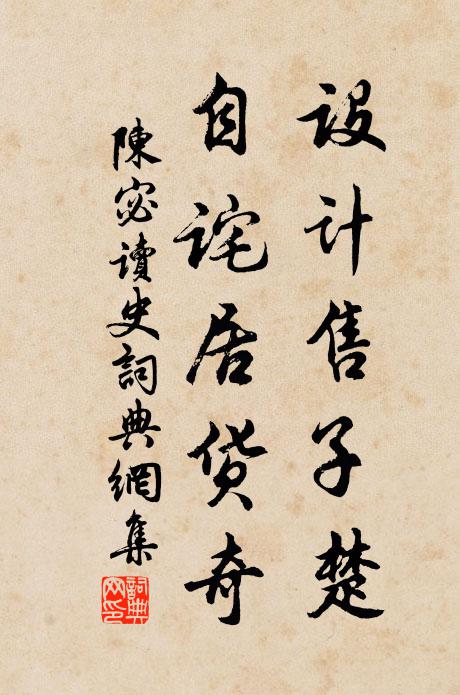 設計售子楚
自詫居貨奇
陳宓讀史詞典網集
詞典网印